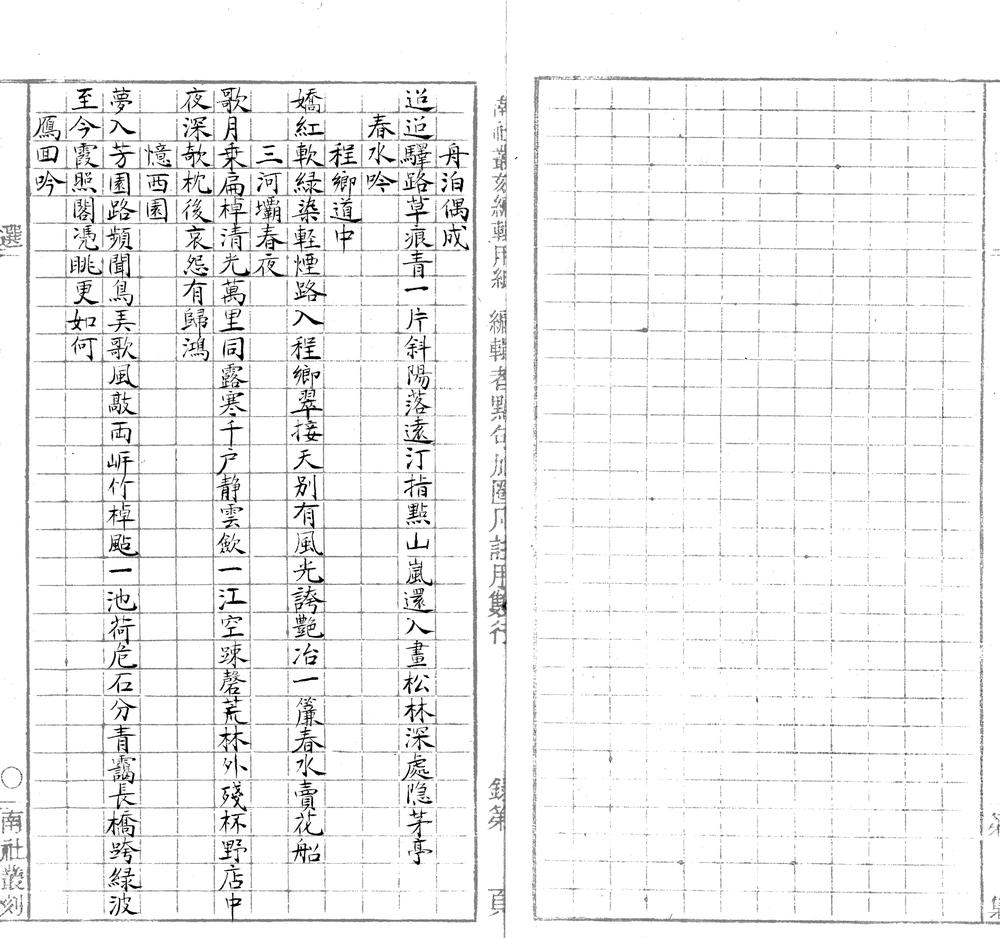 第 集
南社叢刻編輯用紙 編輯者點句加圈凡註用雙行 錄第 頁
舟泊偶成
迢迢驛路草痕青一片斜陽落遠汀指點山嵐還入畫松林深處隐茅亭
春水吟
程鄉道中
嬌紅軟綠染輕煙路入程鄉翠接天別有風光誇艷冶一簾春水賣花船
三河壩春夜
歌月乗扁棹清光萬里同露寒千户靜雲歛一江空踈磬荒林外殘杯野店中
夜深欹枕後哀怨有歸鴻
憶西園
夢入芳園路頻聞鳥弄歌風敲両岍竹棹颭一池荷危石分青靄長橋跨綠波
至今霞照閣凭眺更如何
鴈回吟
選 〇 南社叢刻